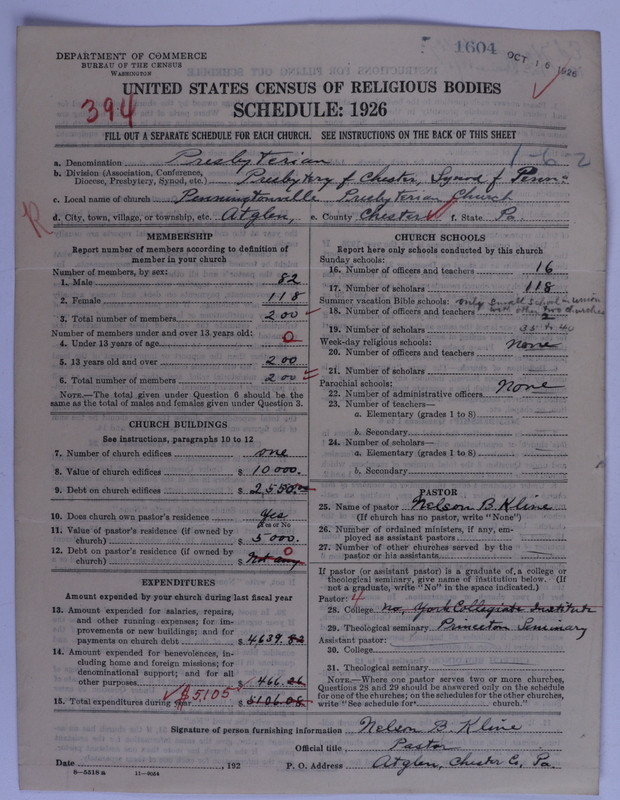 1604
OCT 16 1926
DEPARTMENT OF COMMERCE
BUREAU OF THE CENSUS
WASHINGTON
394
UNITED STATES CENSUS OF RELIGIOUS BODIES
SCHEDULE: 1926
FILL OUT A SEPARATE SCHEDULE FOR EACH CHURCH. SEE INSTRUCTIONS ON THE BACK OF THIS SHEET
1-6-2
a. Denomination Presbyterian
b. Division (Association, Conference,
Diocese, Presbytery, Synod, etc.) Presbytery of Chester, Synod of Penn.
c. Local name of church Penningtonville Presbyterian Church
R
d. City, town, village, or township, etc. Atglen, e. County Chester f. State Pa.
MEMBERSHIP
Report number of members according to definition of
member in your church
Number of members, by sex:
1. Male 82
2. Female 118
3. Total number of members 200
Number of members under and over 13 years old:
4. Under 13 years of age 0
5. 13 years old and over 200
6. Total number of members 200
NOTE.—The total given under Question 6 should be
the same as the total of males and females given under Question 3.
CHURCH BUILDINGS
See instructions, paragraphs 10 to 12
7. Number of church edifices one
8. Value of church edifices $ 10000.
9. Debt on church edifices $ 2,550.00
10. Does church own pastor's residence Yes
(Yes or No)
11. Value of pastor's residence (if owned by
church) $ 5000.
12. Debt on pastor's residence (if owned by
church) $ Not any 0
EXPENDITURES
Amount expended by your church during last fiscal year
13. Amount expended for salaries, repairs,
and other running expenses; for im-
provements or new buildings; and for
payments on church debt $ 4639.82
14. Amount expended for benevolences, in-
cluding home and foreign missions; for
denominational support; and for all
other purposes $ 466.26
$5105
15. Total expenditures during year $ 5106.08
CHURCH SCHOOLS
Report here only schools conducted by this church
Sunday schools:
16. Number of officers and teachers 16
17. Number of scholars 118
Summer vacation Bible schools: only Small School in union
with other two churches
18. Number of officers and teachers 2
19. Number of scholars 35 to 40
Week-day religious schools: none
20. Number of officers and teachers
21. Number of scholars
Parochial schools: None
22. Number of administrative officers
23. Number of teachers—
a. Elementary (grades 1 to 8)
b. Secondary
24. Number of scholars—
a. Elementary (grades 1 to 8)
b. Secondary
PASTOR
25. Name of pastor Nelson B. Kline
(If church has no pastor, write "None")
26. Number of ordained ministers, if any, em-
ployed as assistant pastors
27. Number of other churches served by the
pastor or his assistants
If pastor (or assistant pastor) is a graduate of a college or
theological seminary, give name of institution below. (If
not a graduate, write "No" in the space indicated.)
Pastor: 4
28. College No, York Collegiate Institute
29. Theological seminary Princeton Seminary
Assistant pastor:
30. College
31. Theological seminary
NOTE.—Where one pastor serves two or more churches,
Questions 28 and 29 should be answered only on the schedule
for one of the churches; on the schedules for the other churches
write "See schedule for church."
Signature of person furnishing information Nelson B. Kline
Official title Pastor
Date , 192 P. O. Address Atglen, Chester Co., Pa.
8—5518a 11—9054